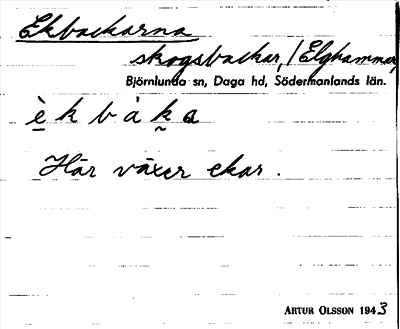 Ekbackarna
skogsbackar, /Elghammar,
Björnlunda sn, Daga hd, Södermanlands län.
è k b à k a
Här växer ekar.
ARTUR OLSSON 1943